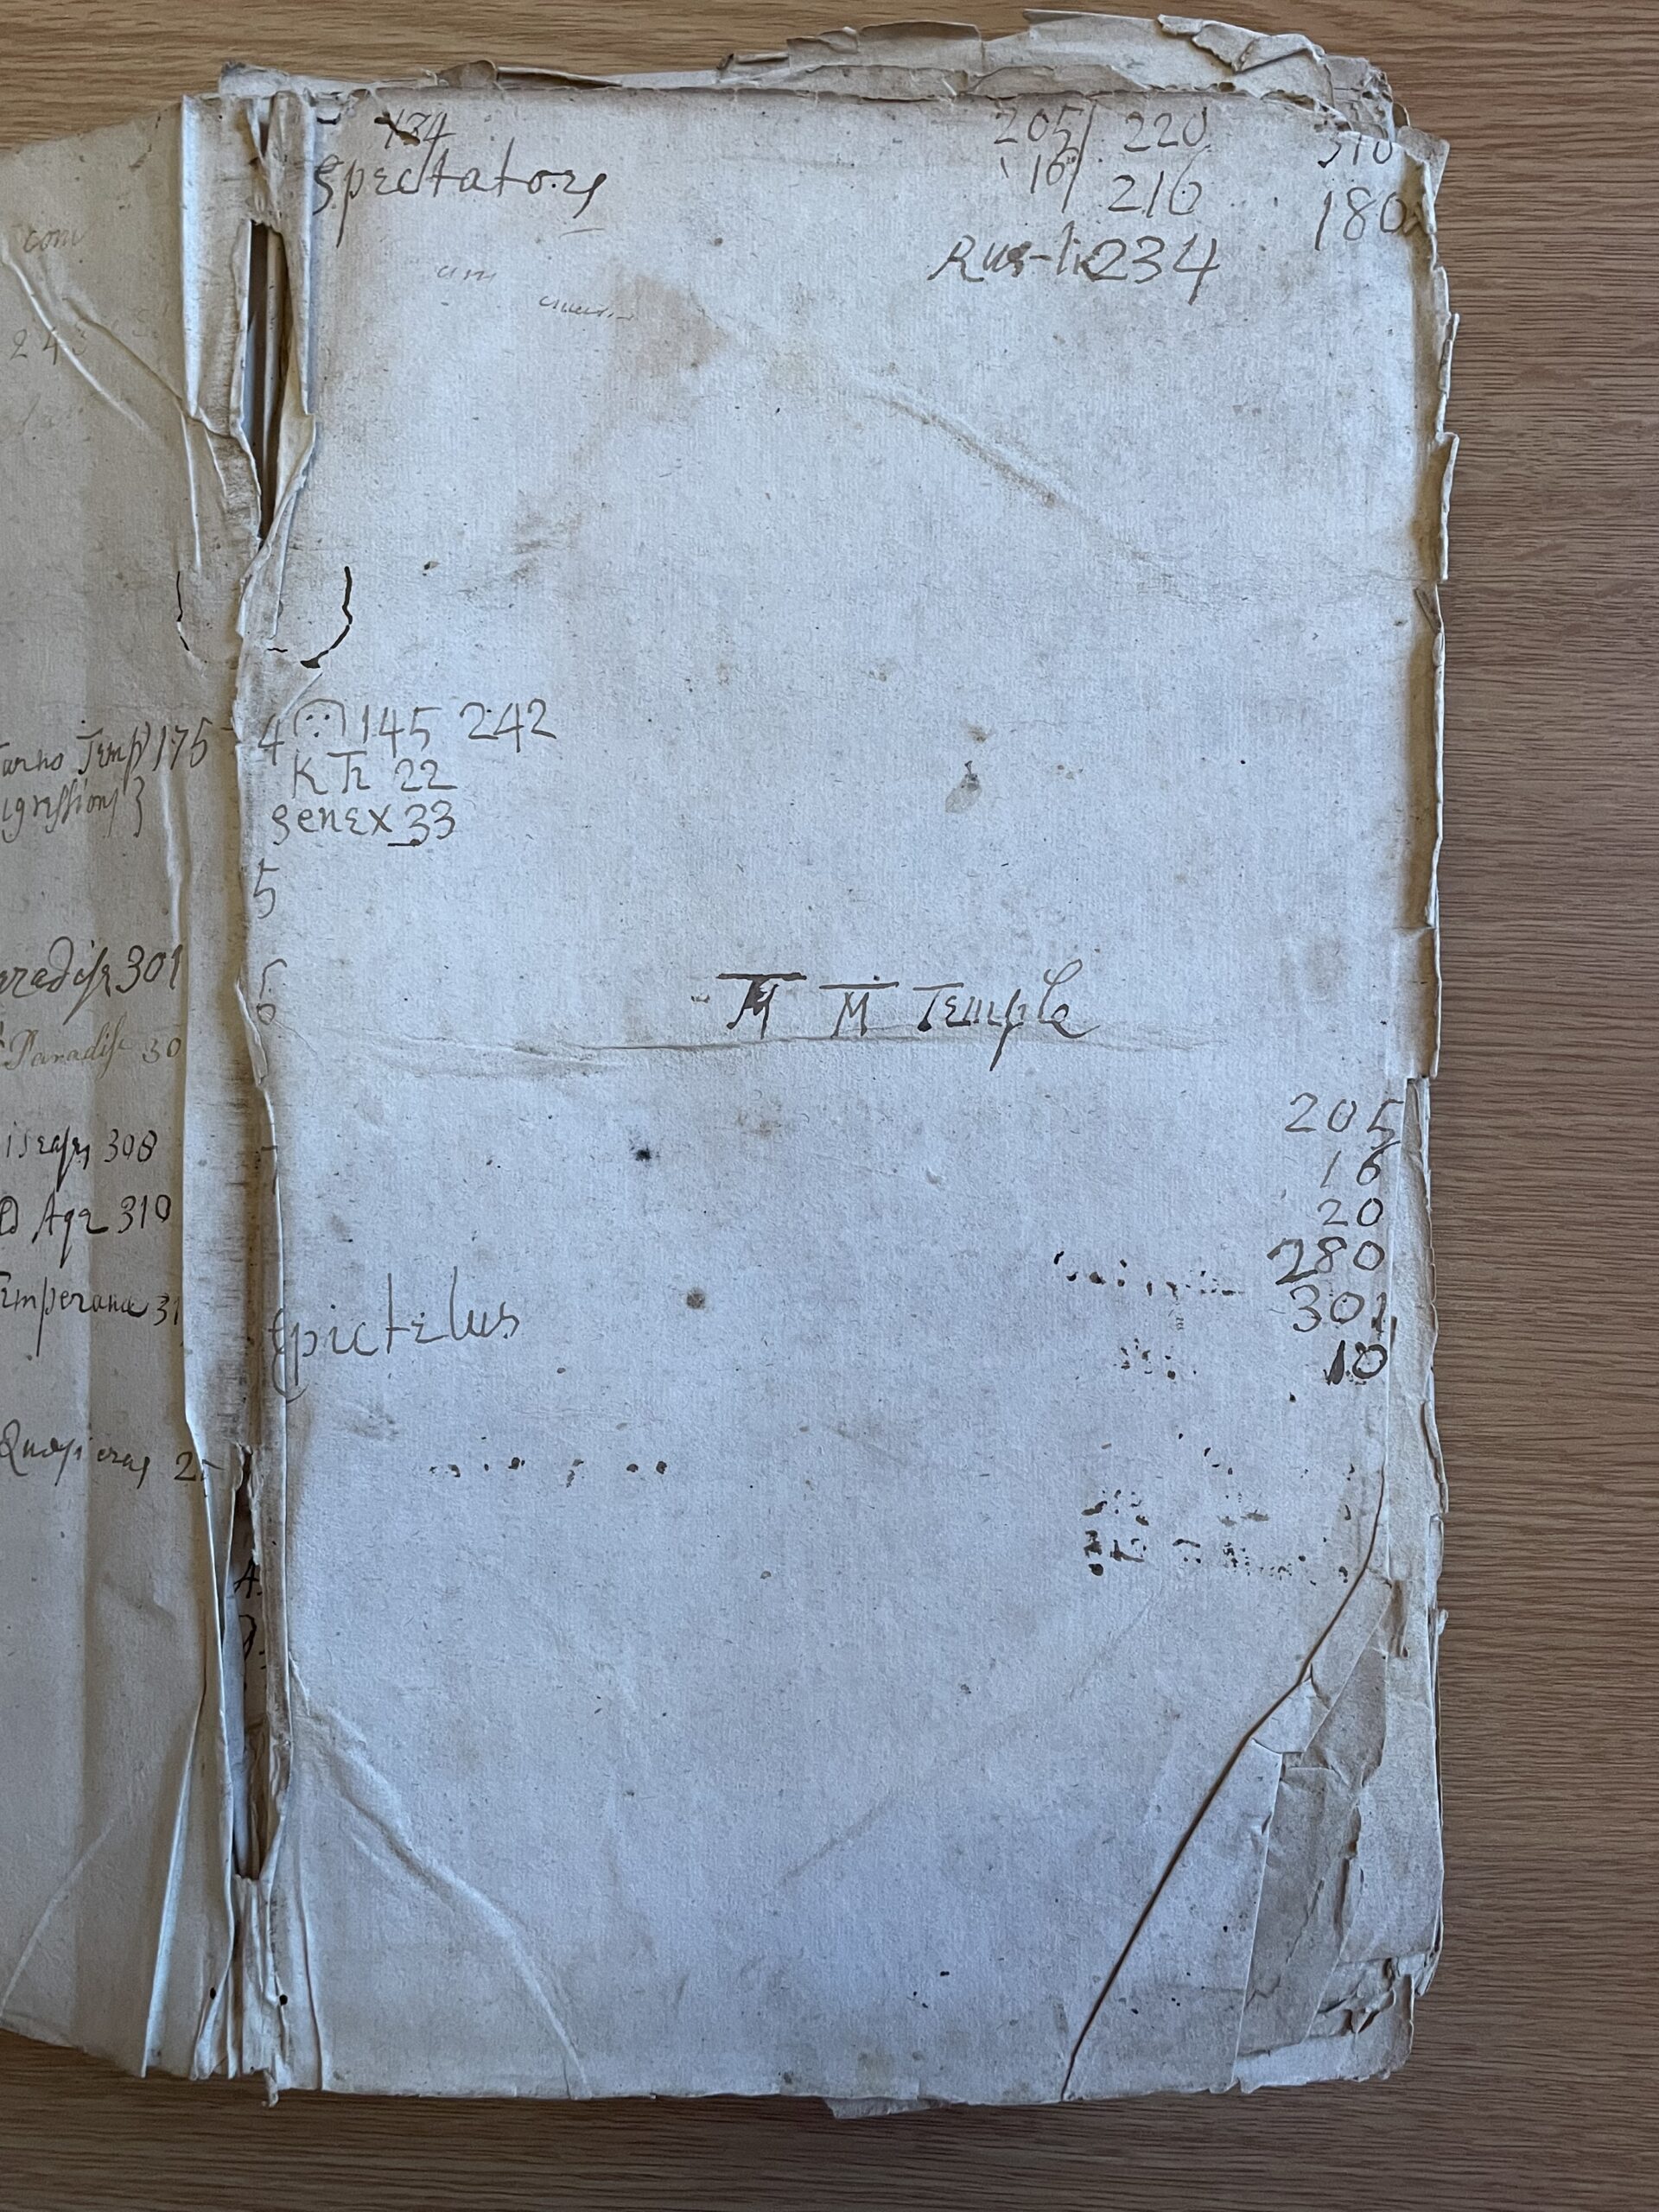 com
243
Temp) 175
igressions }
aradise 301
Paradise 30
iseases 308
d Age 310
Temperance 31
Quasi cras 2
A.
134
Spectators
205/ 220 310
16/ 216 180
234
4 145 242
K Tr 22
Senex 33
5
6
M M Temple
205
16
20
280
301
10
Epictetus